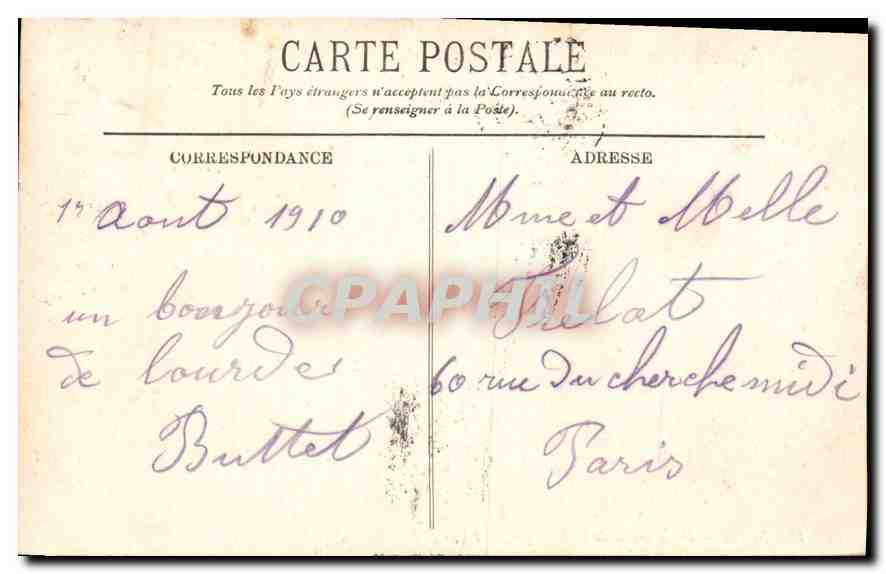 CARTE POSTALE
Tous les Pays étrangers n'acceptent pas la Correspondance au recto.
(Se renseigner à la Poste).
CORRESPONDANCE
1r Aout 1910
un bonjour
de lourdes
Buttet
ADRESSE
Mme et Melle
Trelat
60 rue Du cherche midi
Paris
CPAPHIL